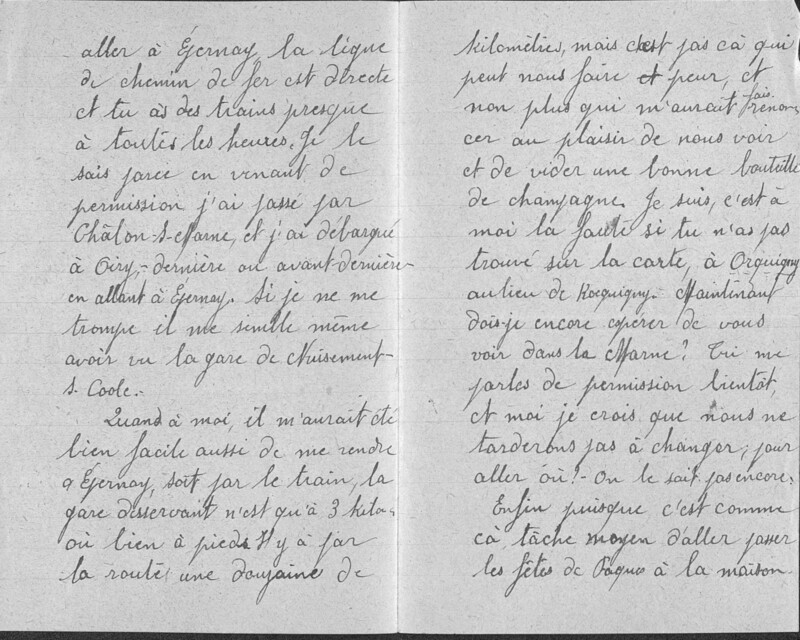 aller à Épernay, la ligne
de chemin de fer est directe
et tu às des trains presque
à toutes les heures. Je le
sais parce en venant de
permission j'ai passé par
Châlon-S-Marne, et j'ai débarqué
à Oiry,- dernière ou avant-dernière
en allant à Épernay. Si je ne me
trompe il me semble même
avoir vu la gare de Nuisement-
S. Coole.-
Quand à moi, il m'aurait été
bien facile aussi de me rendre
à Épernay, soit par le train, la
gare desservant n'est qu'à 3 kilo-
ou bien à pieds Il y à par
la route une douzaine de
kilomètres, mais c'est pas cà qui
peut nous faire et peur, et
non plus qui m'aurait fais renon-
cer au plaisir de nous voir
et de vider une bonne bouteille
de champagne. Je suis, c'est à
moi la faute si tu n'as pas
trouvé sur la carte, à Orquigny
au lieu de Rocquigny. Maintenant
dois-je encore espérer de vous
voir dans la Marne? Tu me
parles de permission bientôt,
et moi je crois que nous ne
tarderons pas à changer; pour
aller où?- On le sait pas encore.
Enfin puisque c'est comme
cà tâche moyen d'aller passer
les fêtes de Paques à la maison